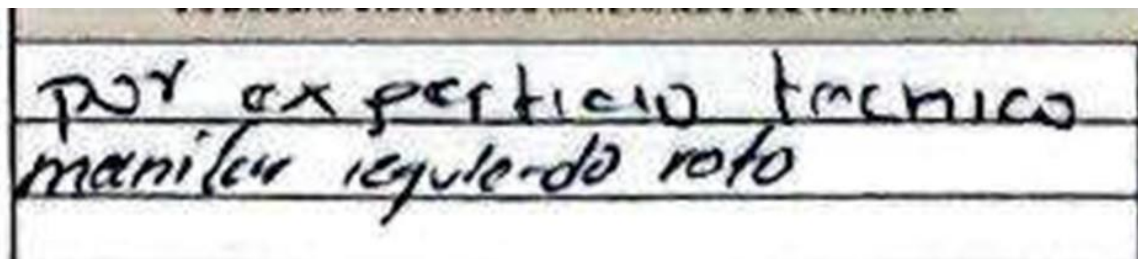 por experticio tecnico
manilar iequierdo roto